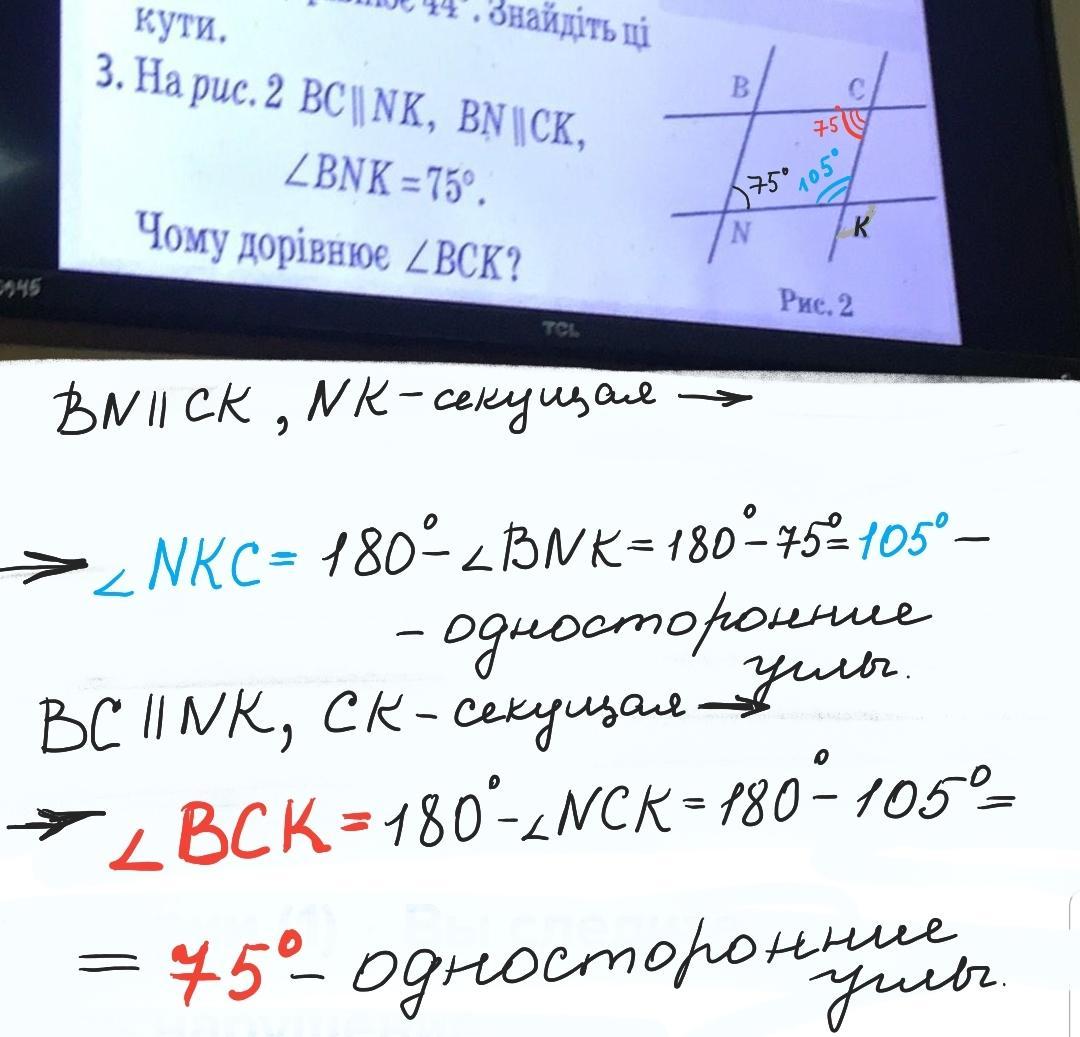 44°. Знайдіть ці
кути.
3. На рис. 2 BC || NK, BN || CK,
∠BNK = 75°.
Чому дорівнює ∠BCK?
B
C
75
75°
105°
N
K
Рис. 2
TCL
BN || CK, NK - секущая →
→ ∠NKC = 180° - ∠BNK = 180° - 75° = 105° -
- односторонние
углы.
BC || NK, CK - секущая →
→ ∠BCK = 180° - ∠NCK = 180° - 105° =
= 75° - односторонние
углы.